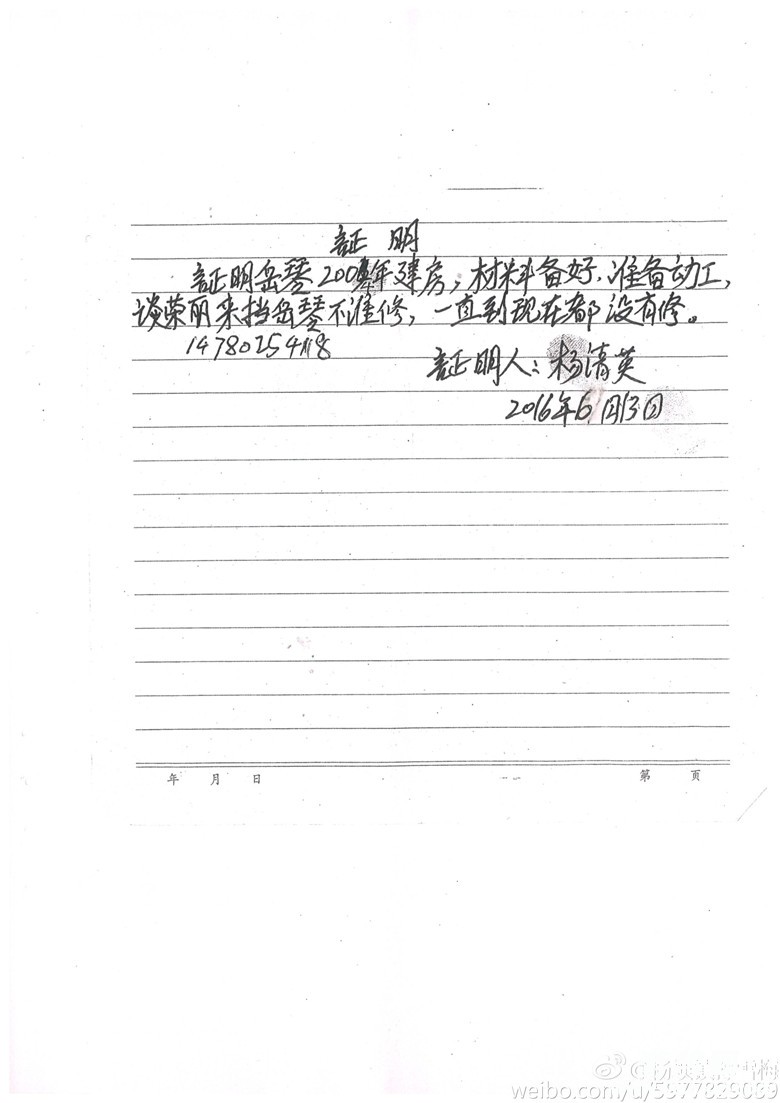 証明
証明岳琴200年建房,材料备好.准备动工,
谈荣丽来挡岳琴不准修,一直到现在都没有修。
证明人:杨清英
2016年6月13日
年 月 日 第 页
weibo.com/u/5977829089